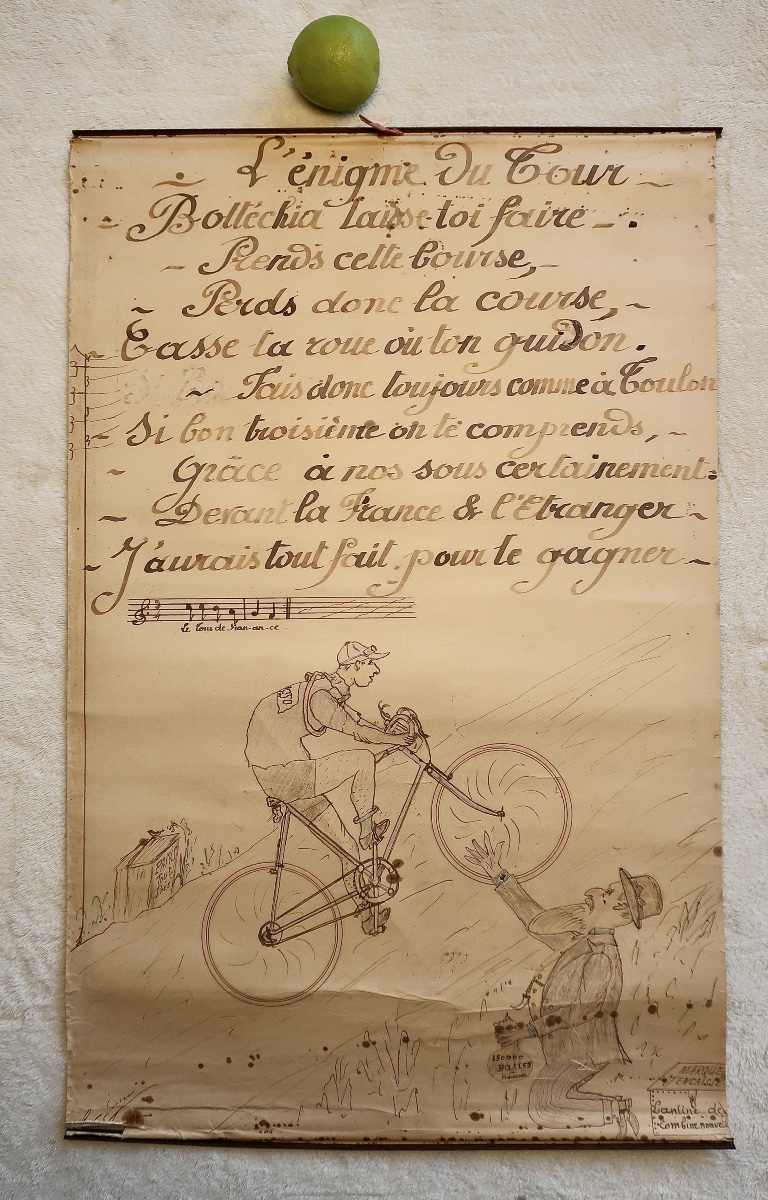 L'énigme du Tour
Bottéchia laisse-toi faire
Prends cette bourse,
Perds donc la course,
Casse ta roue ou ton guidon.
Fais donc toujours comme à Toulon
Si bon troisième on te comprends,
Grâce à nos sous certainement:
Devant la France & l'Etranger
J'aurais tout fait pour te gagner
Le Tour de Fran-an-ce
150.000
BALLES
MARQUE
Cantine de